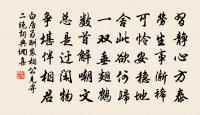 習靜心方泰
勞生事漸稀
可憐安穩地
舍此欲何歸
一雙垂翅鶴
數首解嘲文
總是迂閑物
爭堪伴相君
白居易酬裴相公見寄
二絕詞典網喜